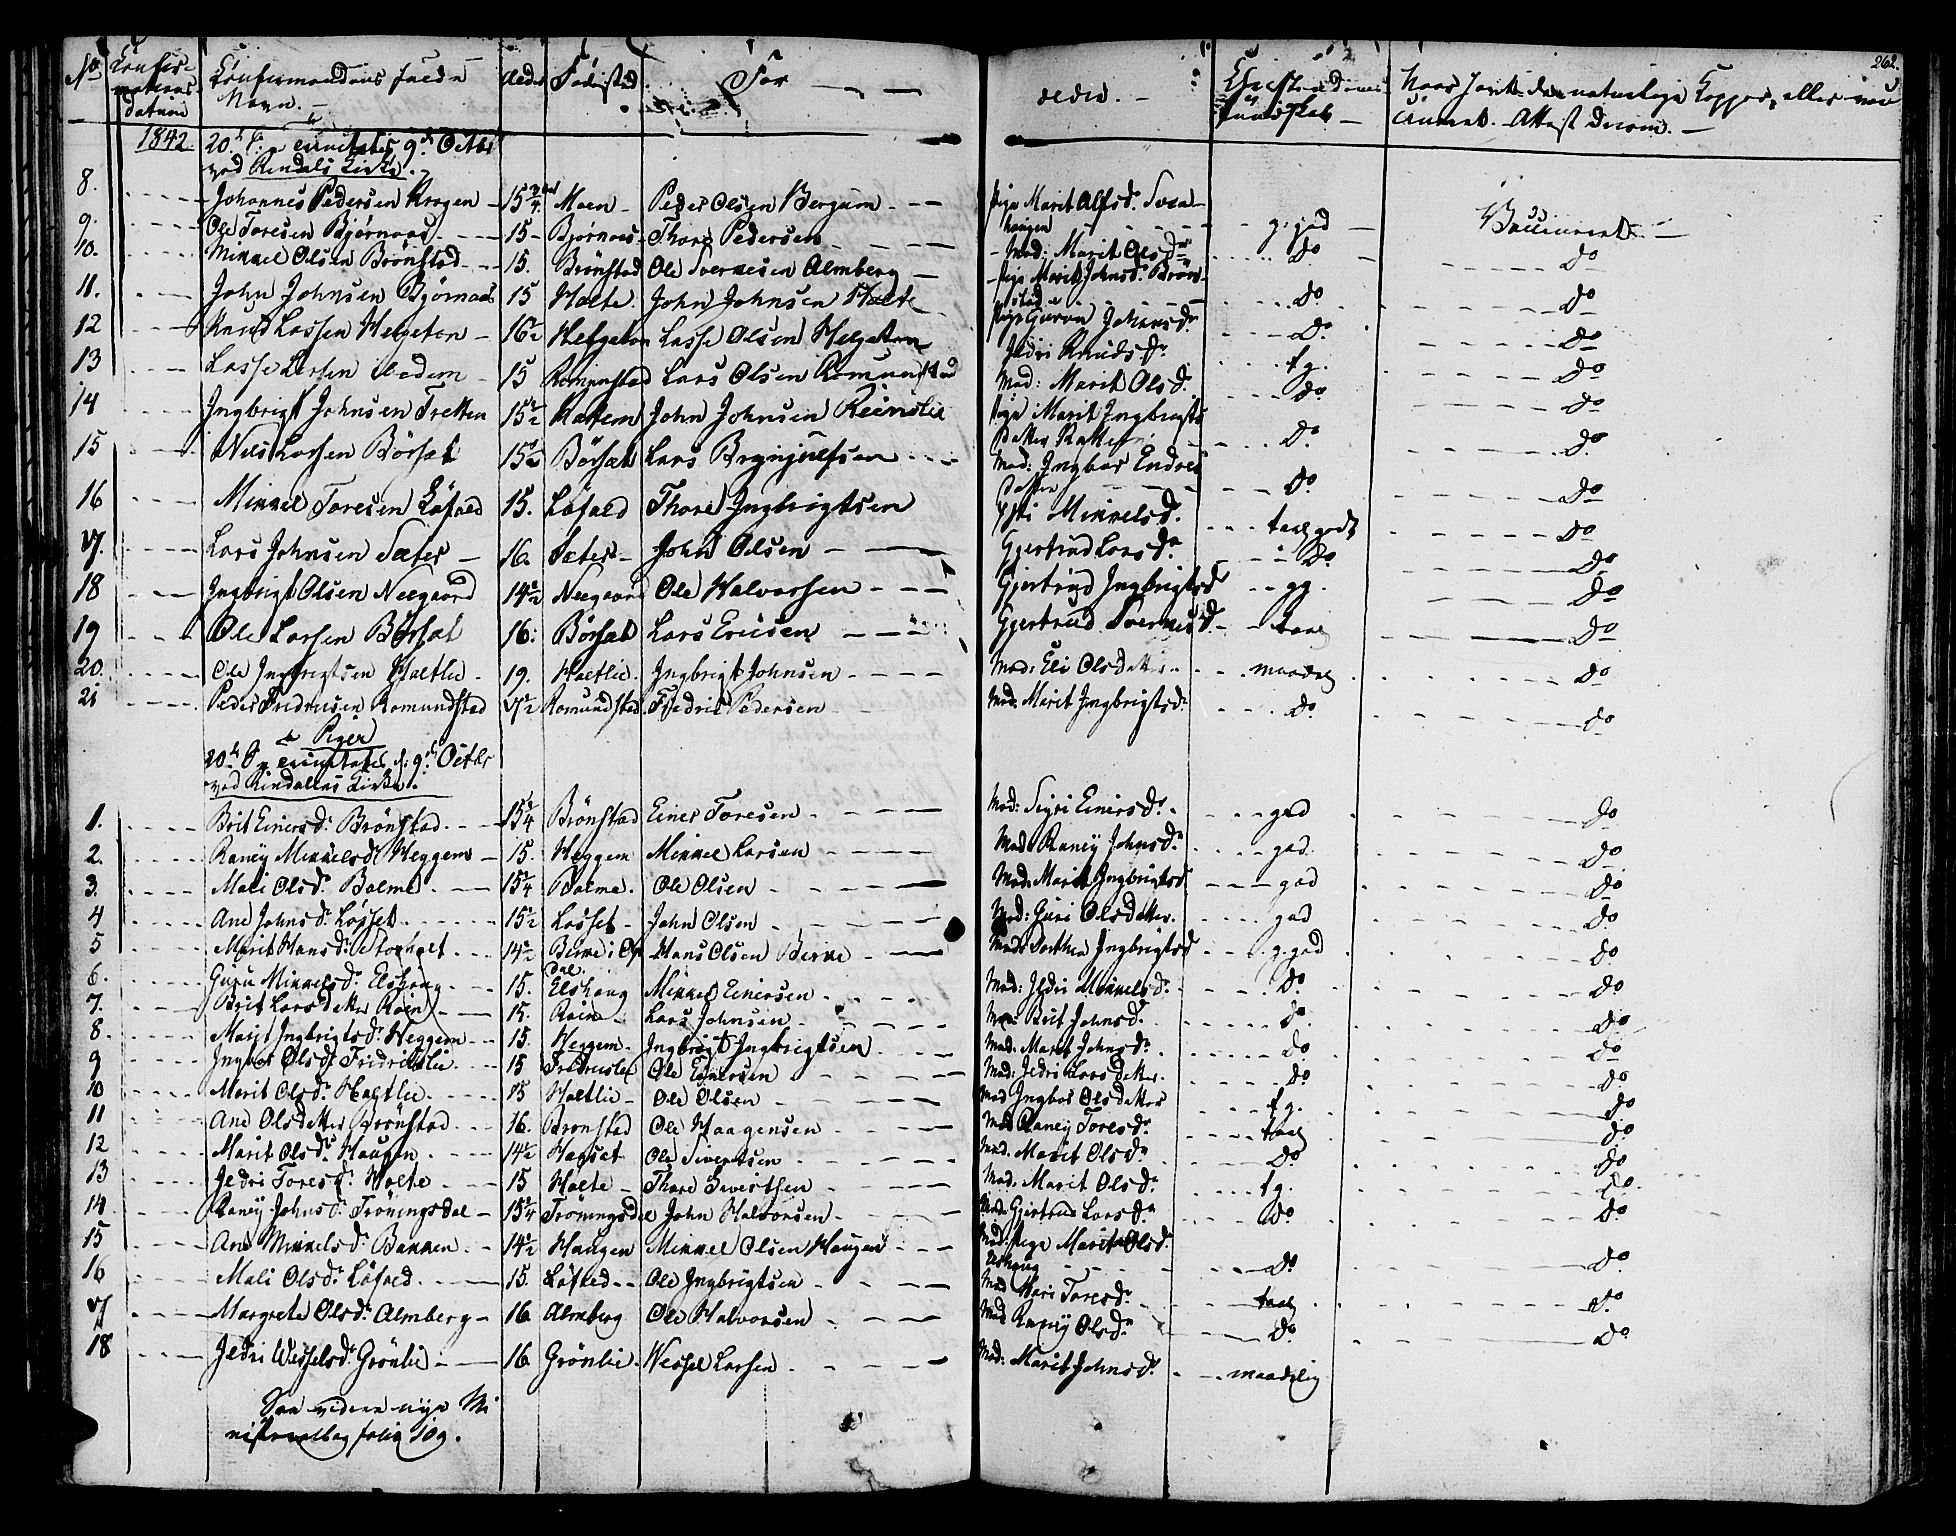 262.
No Confirmations Datum Confirmandens fulde Navn. Alder Fødested For ældre. Christendoms Kundskab Naar havt de naturlige Kopper, eller vaccineret. Attest derom.
1842 20de S: e. trinitatis 9de Octbr
ved Rindals Kirke.
8. Johannes Pedersen Krogen 15 3/4 Moen Peder Olsen Bergum Pige Marit Alfsd. g. god Vaccineret
9. Ole Toresen Bjørnaas 15 Bjørnaas Thore Pedersen Mad: Marit Olsdr Do Do
10. Mikkel Olsen Brönstad 15. Brönstad Ole Sverkesen Almberg Pige Marit Johnsd. Brönstad Do Do
11. John Johnsen Bjørnaas 15 Holte John Johnsen Holte Pige Guron Johansdr Do Do
12 Knud Lassen Helgeton 16 1/2 Helgeton Lasse Olsen Helgeton Jldri Knudsdr tg. Do
13 Lasse Larsen 15 Romundstad Lars Olsen Romundstad Mad: Marit Olsdr Do Do
14 Ingbrigt Johnsen Tretten 15 1/2 John Johnsen Reinslie Pige Marit Ingbrigts Datter Do Do
15 Nils Larsen Börset 15 1/2 Börset Lars Brynjulfsen Mad: Ingbor Endres Datter Do Do
16 Mikkel Toresen Löfald 15. Löfald Thore Ingbrigtsen Mikkelsd. taal godt Do
17. Lars Johnsen Sæter 16. Sæter John Olsen Gjertrud Larsdr Do Do
18 Ingbrigt Olsen Neegaard 14 1/2 Neegaard Ole Halvorsen Gjertrud Ingbrigtsd gg. Do
19 Ole Larsen Börset 16. Börset Lars Ericsen Gjertrud Sverkesd. taal Do
20. Ole Ingbrigtsen Haltlie 19. Haltlie Ingbrigt Johnsen Mad: Eli Olsdatter maadel Do
21 Peder Fredriksen Romundstad 17 1/2 Romundstad. Fredrik Pedersen Mad. Marit Ingbrigtsd. Do Do
Piger
20de S. e. trinitatis, d: 9de Octbr
ved Rindallas Kirke.
1. Brit Einersdr Brönstad 15 1/4 Brönstad Einer Toresen Mad: Sigri Einersdr god Do
2. Raney Mikkelsdr Heggem 15. Heggem Mikkel Larsen Mad: Raney Johnsdr god. Do
3. Mali Olsdr Bolme 15 1/4 Bolme. Ole Olsen Mad. Marit Ingbrigtsd god Do
4 Ane Johnsdr Løsset 15 1/2 Løsset John Olsen Mad: Guri Olsdatter. god Do
5 Marit Hansdr Storholt 14 1/2 Berke i Opdal Hans Olsen Berke Mad: Dorthea Ingbrigtsd g. god Do
6. Guru Mikkelsdr Elshaug 15. Elshaug Mikkel Einersen Mad: Jldri Mikkelsdr Do Do
7. Brit Larsdatter Röen 15. Röen Lars Johnsen Mad: Brit Johnsd. Do Do
8. Marit Ingbrigtsdr Heggem 15. Heggem Ingbrigt Ingbrigtsen Mad. Marit Johnsdr Do Do
9 Ingbor Olsdr Fridrikslie 15 Fredrikslie Ole Einersen Mad: Jldri Larsdatter. Do Do
10 Marit Olsdr Haltlie 15 Haltlie Ole Olsen Mad Ingbor Olsdatter tg. Do
11 Ane Olsdatter Brönstad 16. Brönstad Ole Haagensen Mad Raney Toresdr taal Do
12 Marit Olsdr Haugen 14 1/2 Ole Sivertsen Mad. Marit Olsdr Do Do
13 Jldri Toresdr Holte 15 Holte Thore Sivertsen Mad. Marit Olsdr tg. Do
14. Raney Johnsdr Tröningsdal 15 1/4 Tröningsdal John Halvorsen Mad. Gjertrud Larsdr Do Do
15 Ane Mikkelsdr Bakken 14 1/2 Haugen Mikkel Olsen Haugen Mad. Pige Marit Olsd. Do Do
16 Mali Olsdr Löfald 15. Löfald Ole Ingbrigtsen Mad Mari Toresdr taal Do
17 Margrete Olsdr Almberg 16. Almberg Ole Halvorsen Mad Raney Olsdr Do Do
18 Jldri Wesselsdr Grönlie 16. Grönlie. Wessel Larsen Mad: Marit Johnsdr maadelig
See videre nye Mi
nisterialbog folio 109.